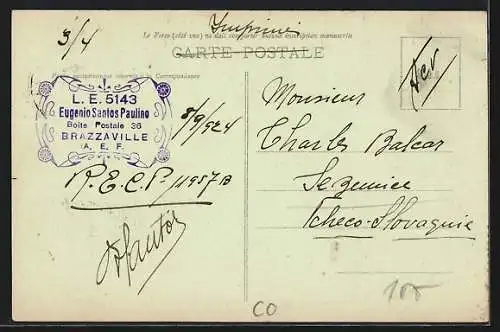 Imprimé
3/4
Le Verso (côté vue) ne doit comporter aucune inscription manuscrite
CARTE POSTALE
L. E. 5143
Eugenio Santos Paulino
Boite Postale 36
BRAZZAVILLE
(A. E. F.
8/9/924
R.E.C.P. 11957 B
Monsieur
Charles Balcar
Sezemice
Tcheco-Slovaquie
CO
100